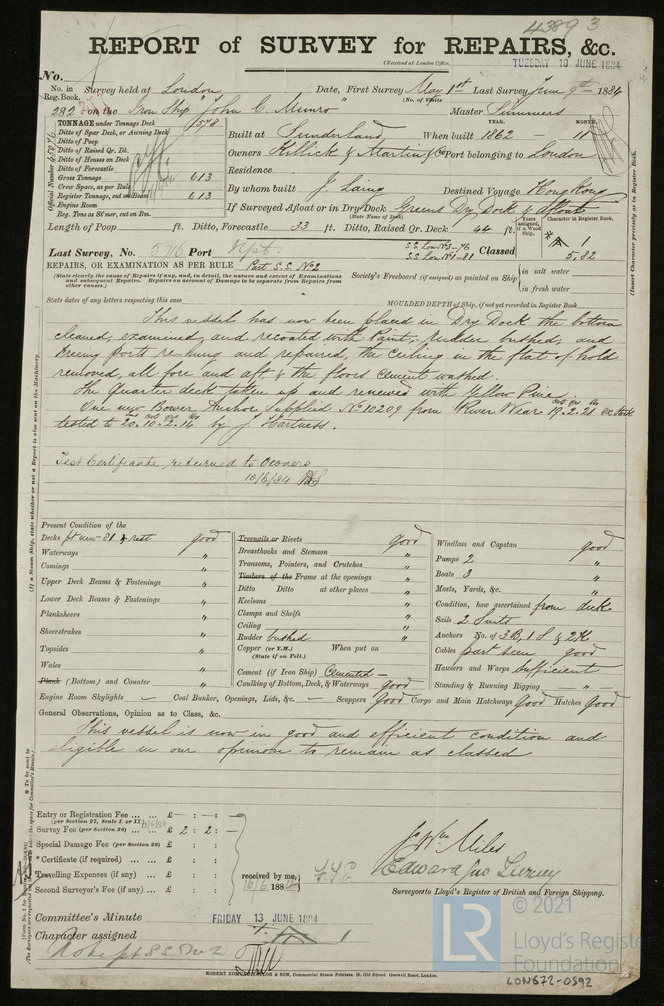 43893
REPORT of SURVEY for REPAIRS, &c.
(Received at London Office, TUESDAY 10 JUNE 1884
No.
No. in Reg. Book. Survey held at London Date, First Survey May 1st Last Survey June 9th 1884
(No. of Visits
282 on the Iron Ship "John C. Munro" Master Summers
TONNAGE under Tonnage Deck 578
Ditto of Spar Deck, or Awning Deck
Ditto of Poop
Ditto of Raised Qr. Dk.
Ditto of Houses on Deck
Ditto of Forecastle
Gross Tonnage 613
Crew Space, as per Rule
Register Tonnage, cut on Beam 613
Engine Room
Reg. Tons as St'mer, cut on Bm.
Official Number 45076
YEAR. MONTH.
Built at Sunderland When built 1862 - 11
Owners Killick & Martin & Co Port belonging to London
Residence
By whom built J. Laing Destined Voyage Hong Kong
If Surveyed Afloat or in Dry Dock Greens Dry Dock & Afloat
(State Name of Dock)
Length of Poop ft. Ditto, Forecastle 33 ft. Ditto, Raised Qr. Deck 44 ft.
Years assigned, if a Wood ship.
Character in Register Book.
A 1
5,82
(Insert Character previously as in Register Book.
Last Survey, No. Port Npt. S.S. Lon No 3-76
S.S. Lon No 1-81 Classed
REPAIRS, OR EXAMINATION AS PER RULE Part S.S. No 2
(State clearly the cause of Repairs if any, and, in detail, the nature and extent of Examinations and subsequent Repairs. Repairs on account of Damage to be separate from Repairs from other causes.)
Society's Freeboard (if assigned) as painted on Ship
in salt water
in fresh water
State dates of any letters respecting this case MOULDED DEPTH of Ship, if not yet recorded in Register Book
This vessel has now been placed in Dry Dock the bottom
cleaned, examined, and recoated with Paint, Rudder bushed, and
ports re-hung and repaired, the Ceiling in the flat of hold
removed, all fore and aft, & the floors cement washed.
The Quarter deck taken up and renewed with Yellow Pine.
One new Bower Anchor Supplied No 10209 from River Wear 19.2.21 ex Stock
tested to 20.10.2.14 by J Hartness.
Test Certificate returned to Owners
10/6/84
Present Condition of the
Decks pt new 81 & rest good
Waterways "
Comings "
Upper Deck Beams & Fastenings "
Lower Deck Beams & Fastenings "
Planksheers "
Sheerstrakes "
Topsides "
Wales "
Plank (Bottom) and Counter "
Treenails or Rivets good
Breasthooks and Stemson "
Transoms, Pointers, and Crutches "
Timbers of the Frame at the openings "
Ditto Ditto at other places "
Keelsons "
Clamps and Shelfs "
Ceiling "
Rudder bushed "
Copper (or Y.M.) When put on
(State if on Felt.)
Cement (if Iron Ship) Cemented -
Caulking of Bottom, Deck, & Waterways good
Windlass and Capstan good
Pumps 2 "
Boats 3 "
Masts, Yards, &c. "
Condition, how ascertained from deck
Sails 2 Suits
Anchors No. of 3B, 1S & 2K
Cables part seen good
Hawsers and Warps Sufficient
Standing & Running Rigging - " -
Engine Room Skylights - Coal Bunker, Openings, Lids, &c. - Scuppers Good Cargo and Main Hatchways Good Hatches Good
General Observations, Opinion as to Class, &c.
This vessel is now in good and efficient condition and
eligible in our opinion to remain as classed
Entry or Registration Fee ... £ : - : -
(per Section 27, Scale I. or II.)
Survey Fee (per Section 28) ... £ 2 : 2 : -
Special Damage Fee (per Section 28) £ : :
* Certificate (if required) ... ... £ : :
Travelling Expenses (if any) ... £ : :
Second Surveyor's Fee (if any) ... £ : :
received by me,
10/6 1884
Jas Wm Miles
Edward Jno
Surveyors to Lloyd's Register of British and Foreign Shipping.
Committee's Minute FRIDAY 13 JUNE 1884
Character assigned A 1
Note pt SS No 2
ROBERT EDMUND TAYLOR & SON, Commercial Steam Printers, 19, Old Street, Goswell Road, London.
(If a Steam Ship, state whether or not a Report is also sent on the Machinery.
© 2021
LR Lloyd's Register
Foundation
LON672-0592